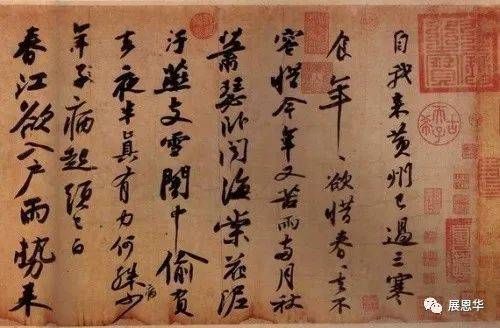 自我来黄州已過三寒
食年〻欲惜春〻去不
容惜今年又苦雨兩月秋
蕭瑟卧聞海棠花泥
汙燕支雪闇中偷負
去夜半真有力何殊少
病
年子病起頭已白
春江欲入户雨勢来
古希天子
展恩华